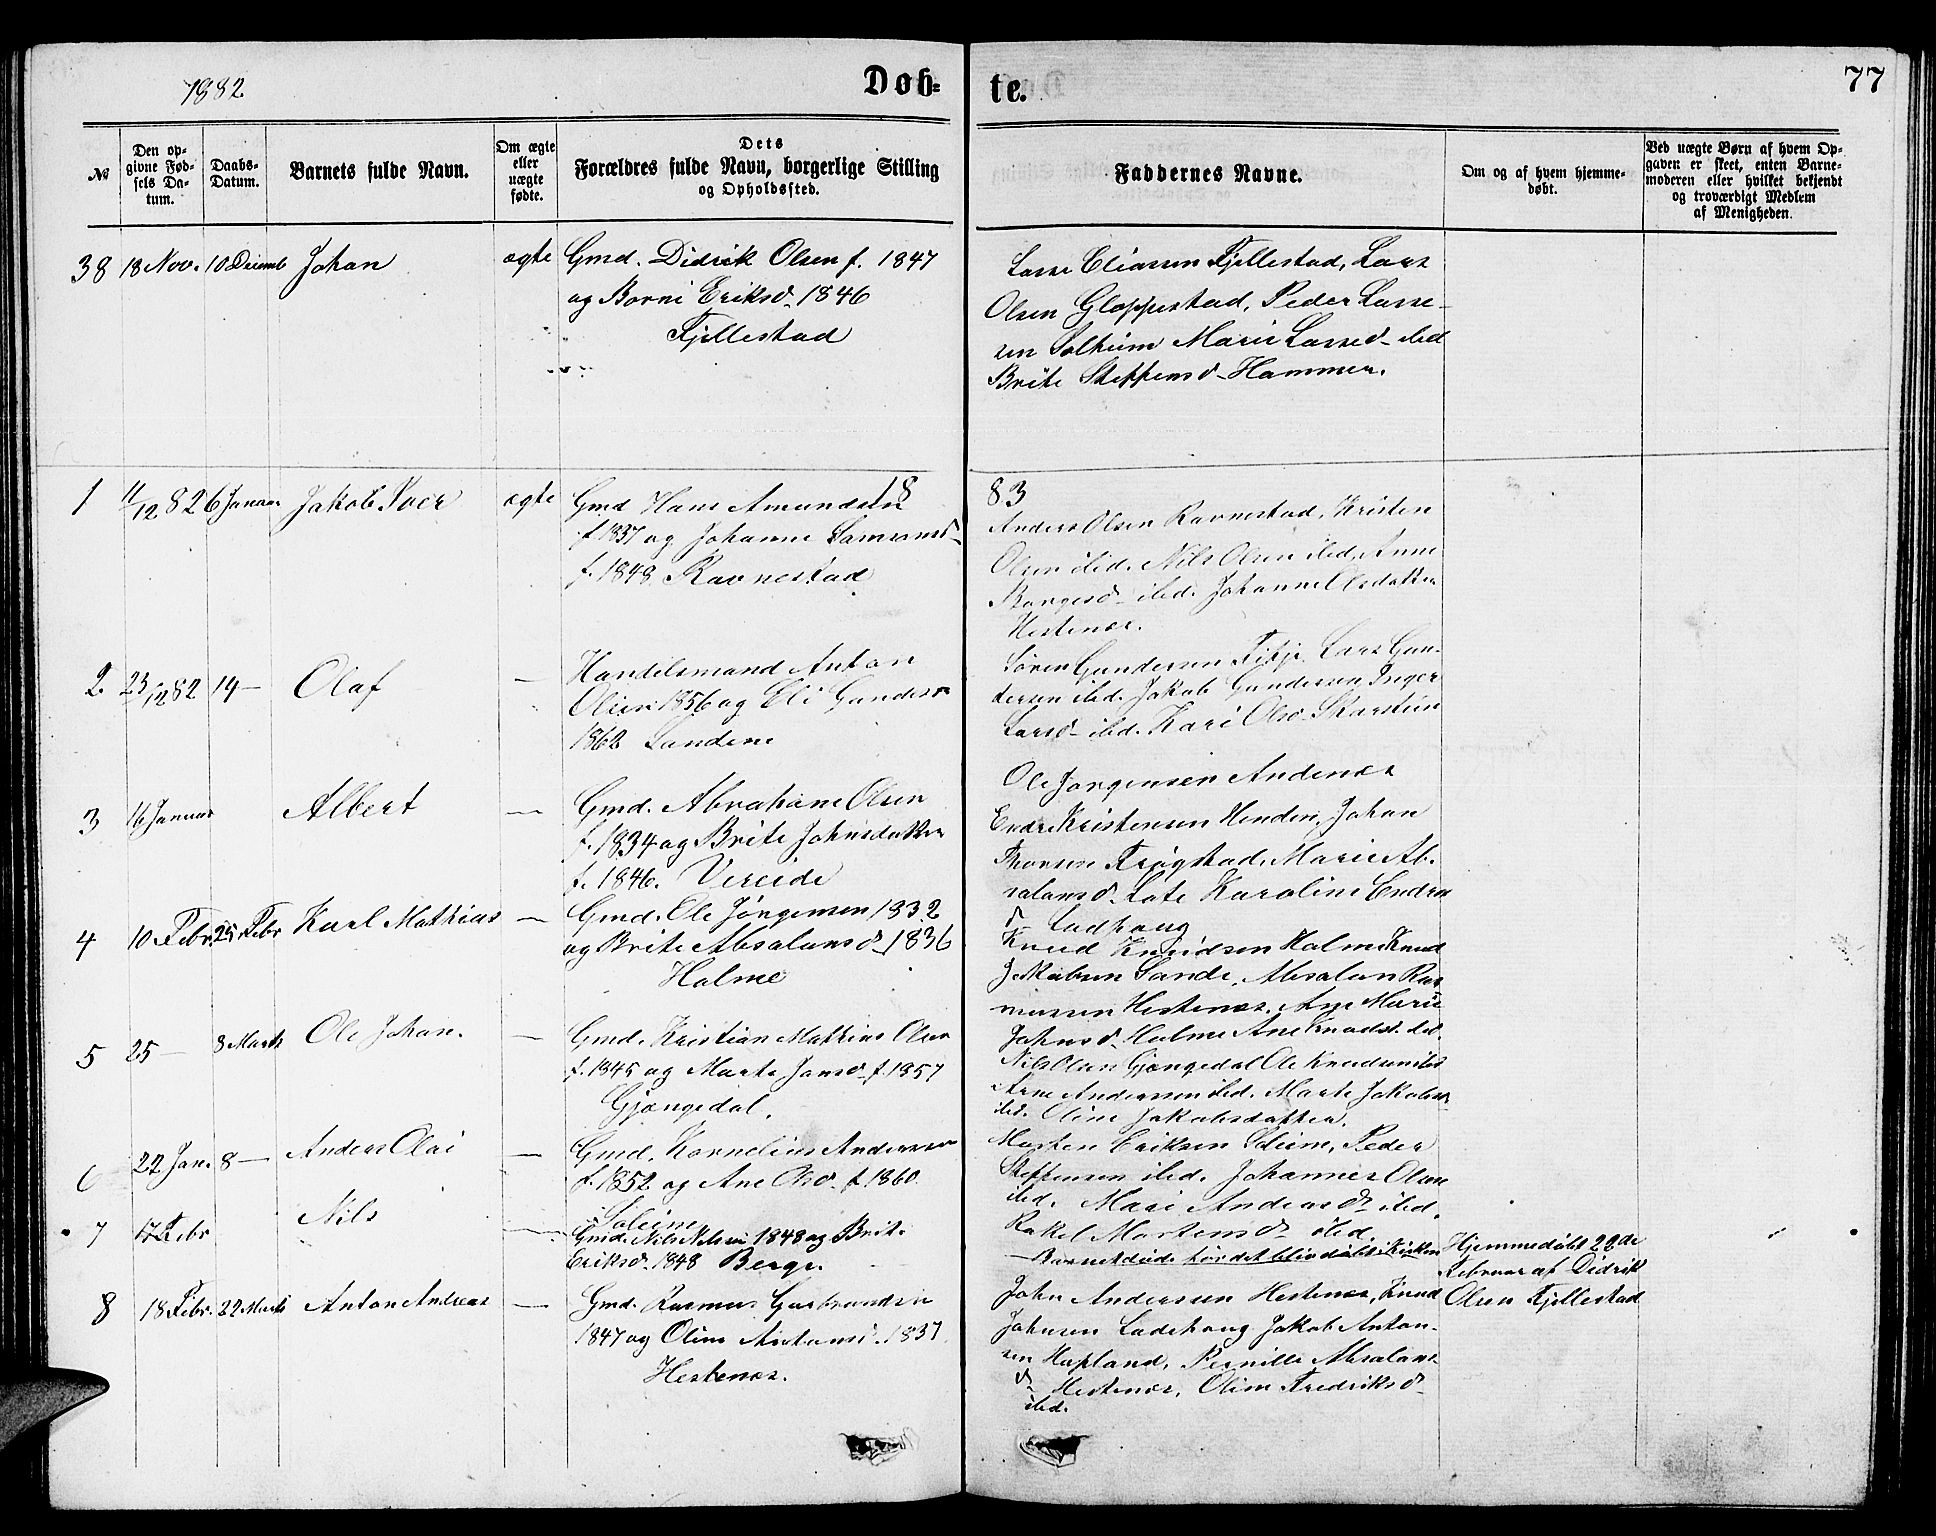 1882
Døb-
te.
77
№
Den op-
givne Fød-
sels Da-
tum.
Daabs-
Datum.
Barnets fulde Navn.
Om ægte
eller
uægte
fødte.
Dets
Forældres fulde Navn, borgerlige Stilling
og Opholdssted.
Faddernes Navne.
Om og af hvem hjemme-
døbt.
Ved uægte Børn af hvem Op-
gaven er skeet, enten Barne-
moderen eller hvilket bekjendt
og troværdigt Medlem
af Menigheden.
38 18 Nov. 10 Decemb Johan ægte
Gmd. Didrik Olsen f. 1847
og Borni Eriksd 1846
Fjellestad
Lasse Eliassen Fjellestad, Lars
Olsen Gloppestad, Peder Lasse-
sen Solheim Marie Lassed ibid
Brite Steffensd Hammer.
18
83
1 11/12 82 6 Januar Jakob Iver ægte
Gmd Hans Amundsen
f 1837 og Johanne Samsonsd
f. 1848 Ravnestad
Anders Olsen Ravnestad, Kristen
Olsen ibid. Nils Olsen ibid, Anne
ibid. Johanne Olsdatter
Hestenes.
2. 23/12 82 14 — Olaf —
Handelsmand Anton
Olsen 1856 og Eli Gundersd
1862 Sandene
Søren Gundersen Fitje. Lars Gun-
dersen ibid. Jakob Gundersen, Inger
Larsd ibid. Kari Olsd Skarstein
3 16 Januar Albert —
Gmd. Abraham Olsen
f. 1834 og Brite Johnsdatter
f. 1846. Vereide
Ole Jørgensen Andenes
Endre Kristensen Henden, Johan
Thomsen Frøgstad, Marie Ab-
salonsd. Lote Karoline Endres
d Ladhaug
4 10 Febr. 25 Febr Karl Mathias —
Gmd. Ole Jørgensen 1832
og Brite Absalonsd 1836
Holme
Knud Knudsen Holme Knud
Jakobsen Sande, Absalon Ras
mussen Hestenes. Ane Marie
Johnsd. Holme Ane Knudsd. ibd.
5 25 — 8 Marts Ole Johan. —
Gmd. Kristian Mathias Olsen
f. 1845 og Marte Jansd f. 1857
Gjengedal.
Nils Olsen Gjengedal Ole Knudsen ibd
Arne Anderssen ibid. Marte Jakobsd
ibd. Oline Jakobsdatter.
6 22 Jan. 8 — Anders Olai —
Gmd. Kornelius Anderssen
f. 1852 og Ane Olsd f. 1860
Soleim
Morten Eriksen Soleim, Peder
Steffensen ibid. Johannes Olsen
ibd. Mari Andersd ibid.
Rakel Mortensd ibid
7 17 Febr Nils —
Gmd. Nils Nilsen 1848 og Brite
Eriksd 1848 Berge.
— Barnet døde før det blev døbt i Kirken
Hjemmedøbt 22de
Februar af Didrik
Olsen Fjellestad
8 18 Febr. 22 Marts Anton Andreas —
Gmd. Rasmus Gasbrandsen
1847 og Oline Antonsd. 1837
Hestenes.
John Anderssen Hestenes, Knud
Johnsen Ladehaug Jakob Anton-
sen Hopland, Pernille Absalons
d Hestenes, Oline Fredriksd
ibd.